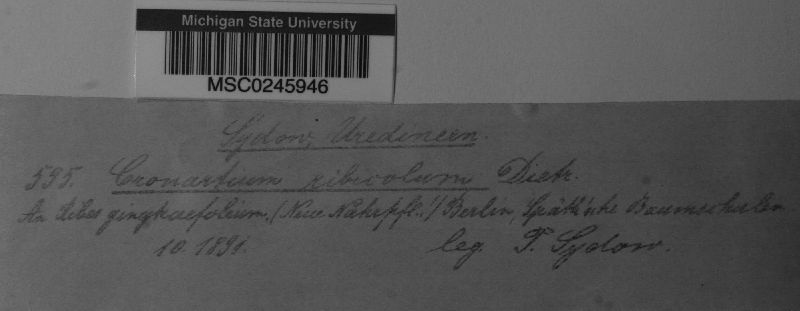 Michigan State University
MSC0245946
Sydow, Uredineen.
595. Cronartium ribicolum Dietr.
An Ribes gingkoefolium, (Neue Nährpfl.!) Berlin, Späth'sche Baumschulen
10. 1891. leg. P. Sydow.